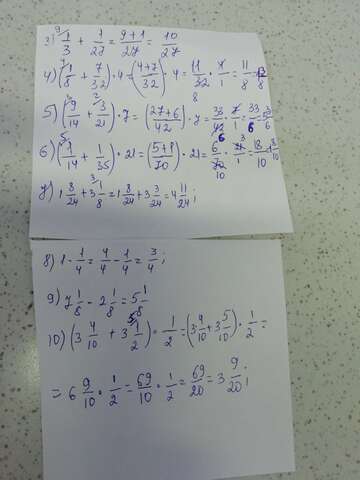 3) 1/3 + 1/27 = 9+1/27 = 10/27
4) (1/8 + 7/32) · 4 = (4+7/32) · 4 = 11/32 · 4/1 = 11/8 =
5) (9/14 + 3/21) · 7 = (27+6/42) · 7 = 33/42 · 7/1 = 33/6 = 5 3/6
6) (1/14 + 1/35) · 21 = (5+8/70) · 21 = 6/70 · 21/1 = 18/10 = 1 8/10
7) 1 8/24 + 3 1/8 = 1 8/24 + 3 3/24 = 4 11/24;
8) 1 - 1/4 = 4/4 - 1/4 = 3/4;
9) 7 1/8 - 2 1/8 = 5 1/8
10) (3 4/10 + 3 1/2) · 1/2 = (3 4/10 + 3 5/10) · 1/2 =
= 6 9/10 · 1/2 = 69/10 · 1/2 = 69/20 = 3 9/20;